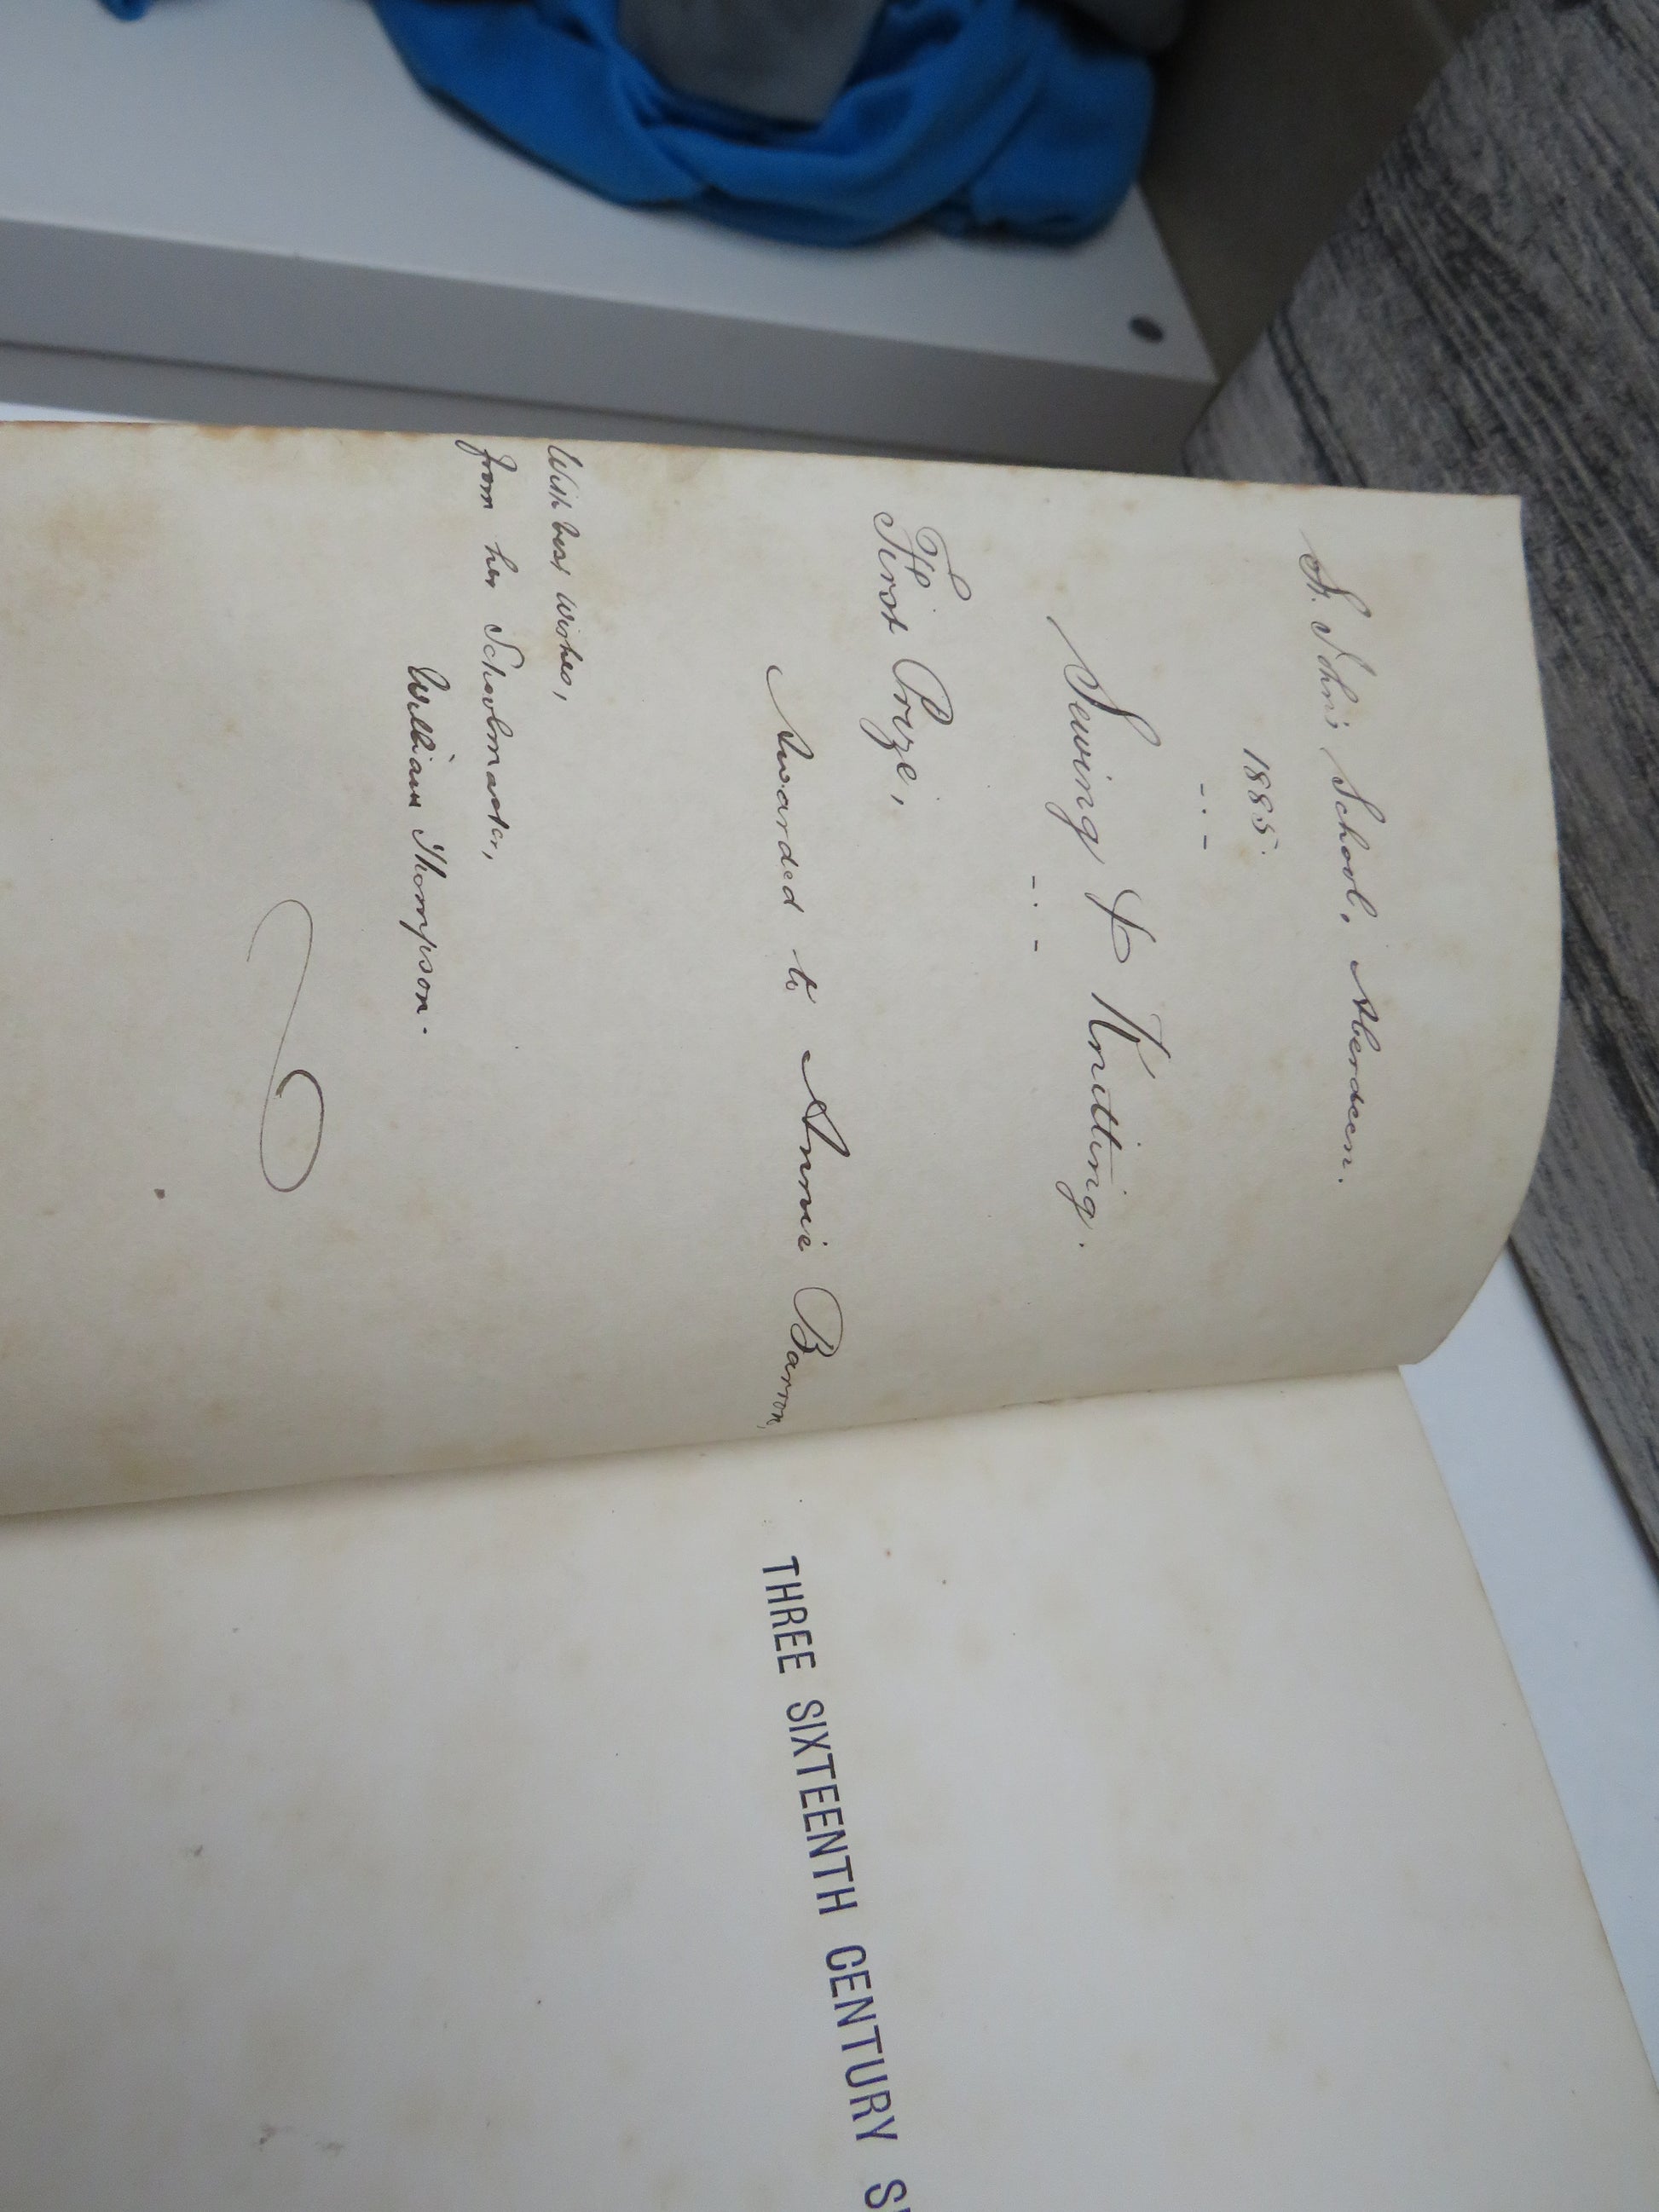 S. John's School, Aberdeen.
1885.
- . -
Sewing & Knitting.
- . -
First Prize,
Awarded to Annie Barron,
With best wishes,
from her Schoolmaster,
William Thompson.
THREE SIXTEENTH CENTURY